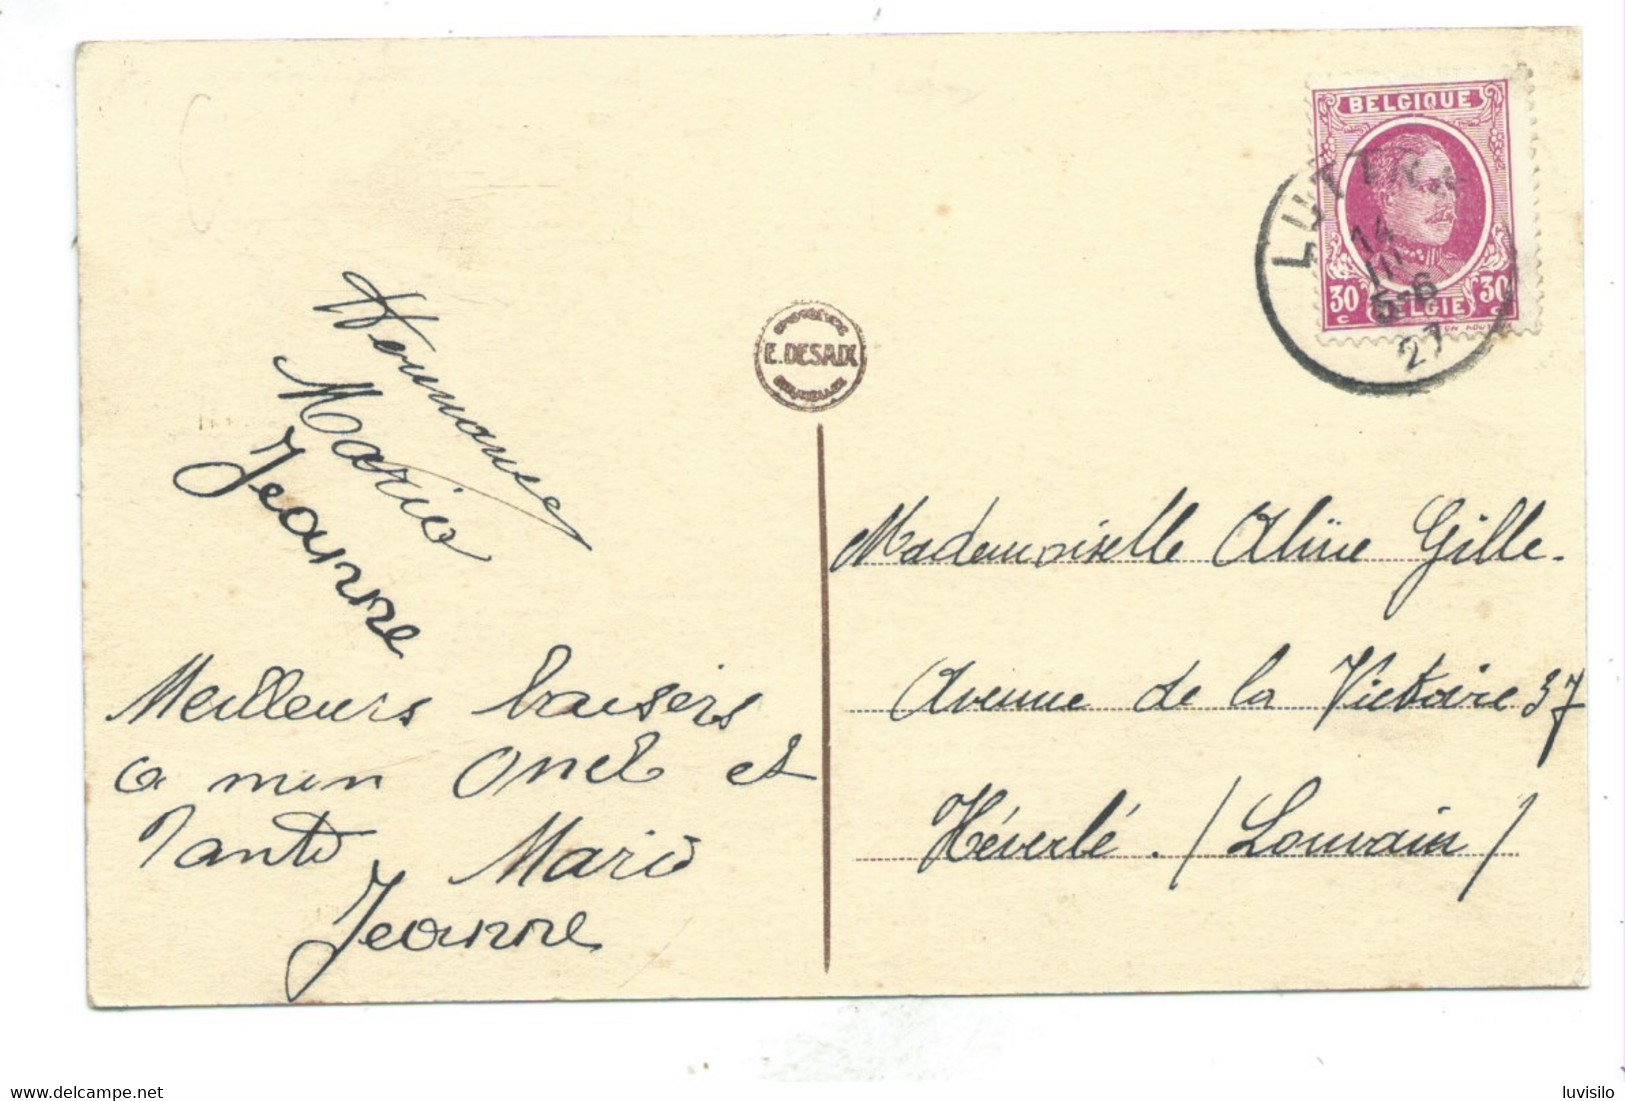 BELGIQUE
30 c
BELGIE
30 c
LUTTR
14
III
5-6
27
E. DESAIX
BRUXELLES
Hermance
Marie
Jeanne
Meilleurs baisers
a mon Oncl et
Tante Marie
Jeanne
Mademoiselle Aline Gille.
Avenue de la Victoire 37
Héverlé. (Louvain)
www.delcampe.net
luvisilo